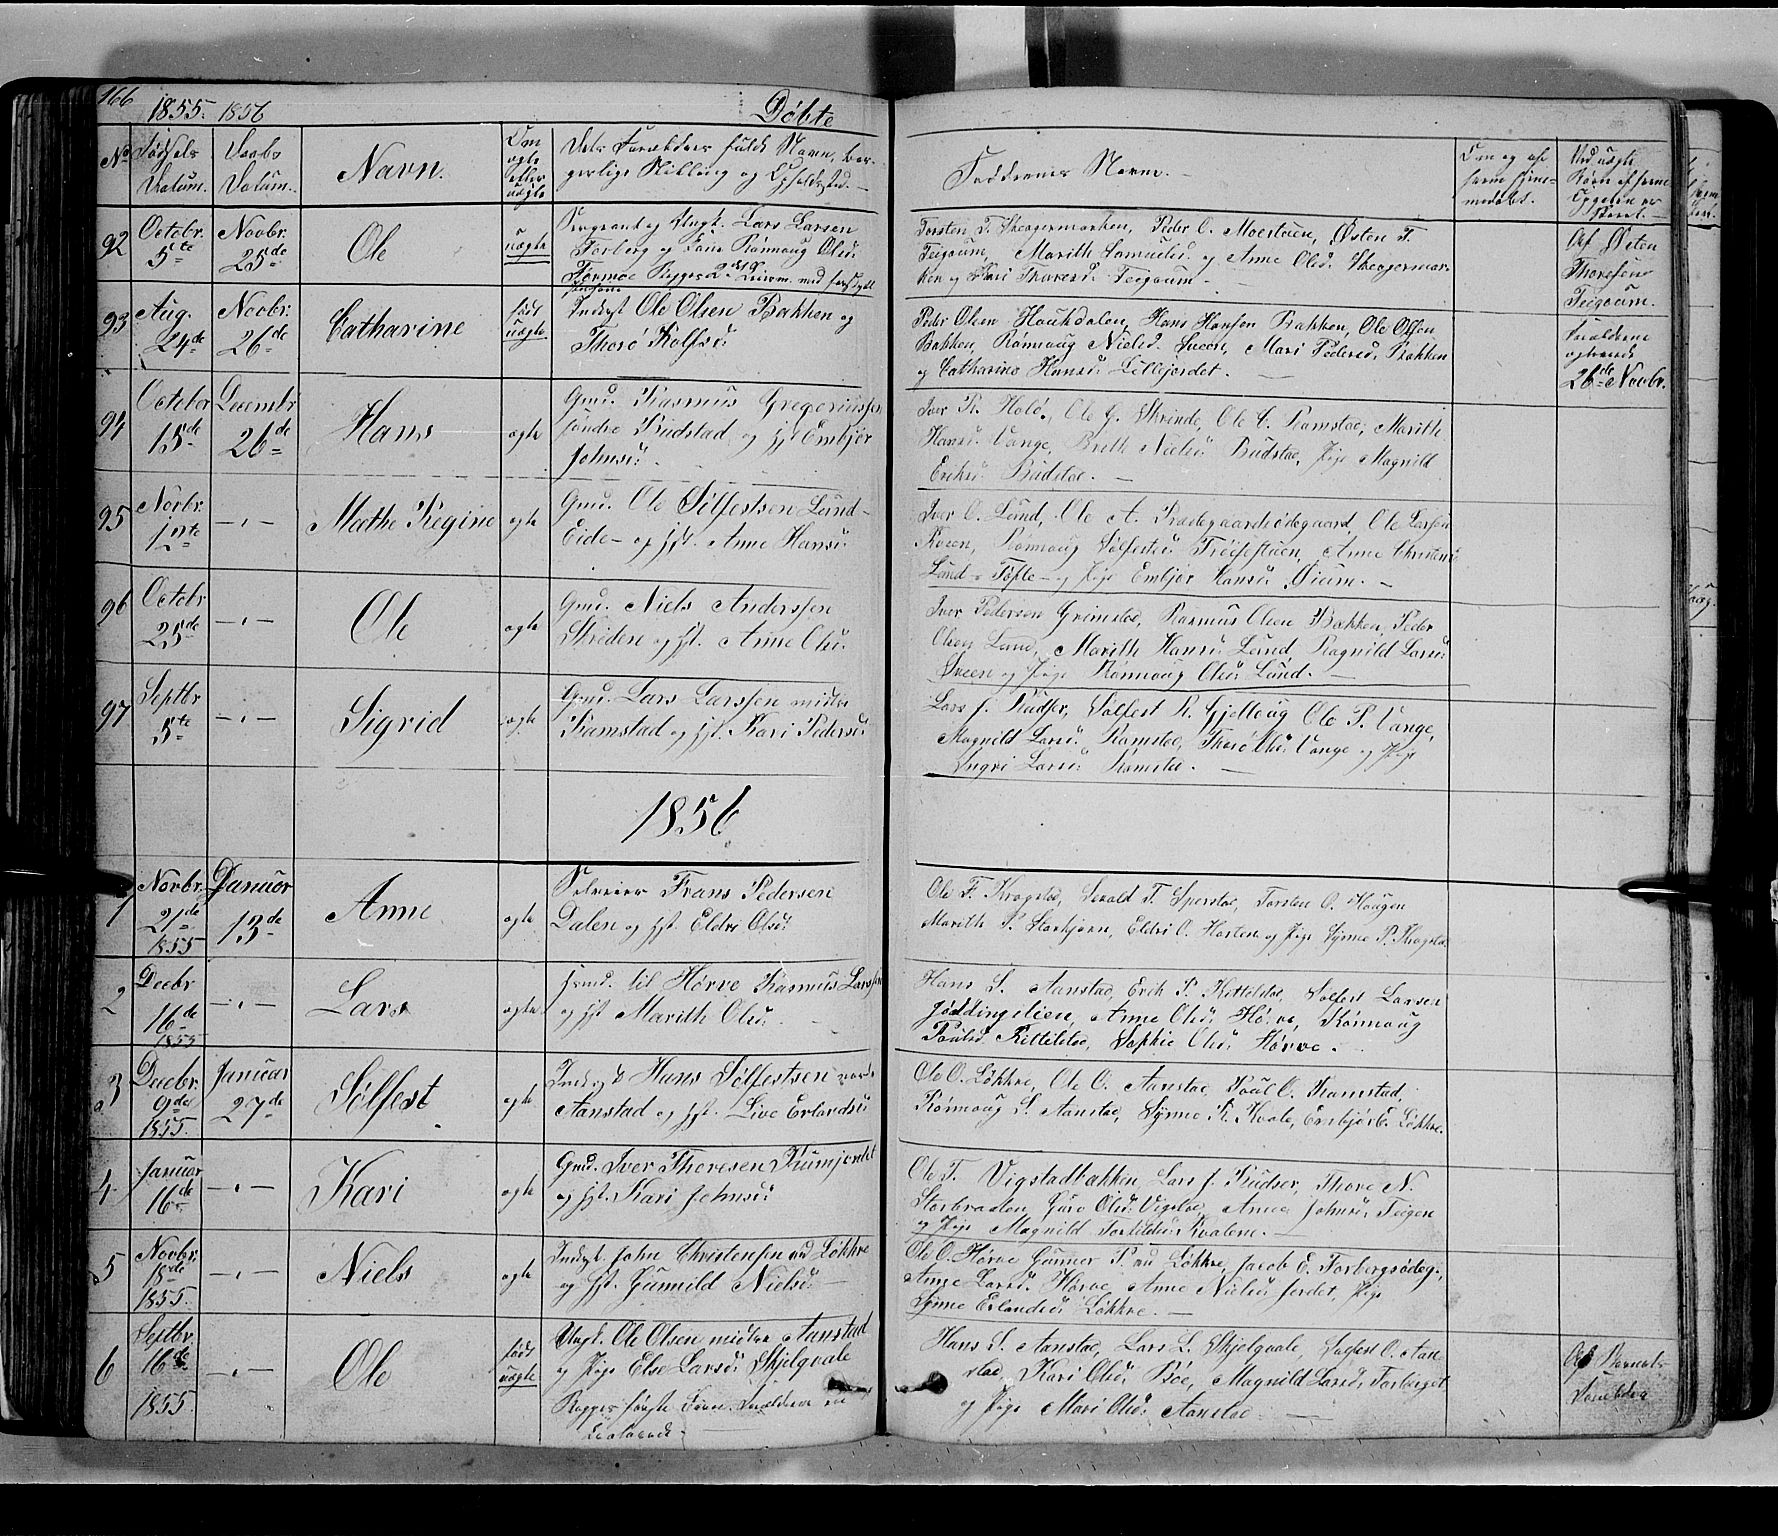 166 1855. 1856 Døbte
No Fødsels Datum. Daabs Datum. Navn. Om ægte eller uægte Dets Forældres fulde Navn, borgerlige Stilling og Opholdssted.
Faddernes Navne.
92 Octobr. 5te Novbr. 25de Ole uægte
Sergeant og Ungk. Lars Larsen
Forberg og Pane Rønnaug Olsd.
Formoe Begges 2det Leierm.
Torsten T. Skaagermarken, Peder C. Moestuen, Østen T.
Teigaum, Marith Samuelsd. og Anne Olsd. Skaagermar-
ken og Kari Thoresd. Teigaum.
Af Østen
Thoresen
Teigaum.
93 Aug. 24de Novbr. 26de Catharine født uægte
Inderst Ole Olsen Bakken og
Thore Rolfsd.
Peder Olsen Haukdalen, Hans Hansen Bakken, Ole Olsen
Bakken, Rønnaug Nielsd. Sveen, Mari Pedersd. Bakken
og Catharine Hansd. Lillejordet.
Forældrene
26de Novbr.
94 October 15de Decembr 26de Hans ægte
Gmd. Rasmus Gregoriussen
søndre Budstad og hst. Embjør
Johnsd.
Iver R. Holø, Ole G. Skrinde, Ole C. Ramstad, Marith
Hansd. Vange, Brith Nielsd. Budstad, Pige Magnild
Eriksd. Budstad.
95 Novbr. 12te Mathe Regine ægte
Gmd. Ole Sølfestsen Lund-
Eide- og hst. Anne Hansd.
Iver O. Lund, Ole A. Prestegaardsødegaard, Ole Larsen
Rueen, Rønnaug Sølfestsd. Trøefstuen, Anne Christensd.
Lund-Tofte- og Pige Embjør Hansd. Øium.
96 Octobr 25de Ole ægte
Gmd. Niels Anderssen
Skrøden og hst. Anne Olsd.
Iver Pedersen Grimstad, Rasmus Olsen Bakken, Peder
Olsen Lund, Marith Hansd. Lund, Ragnild Larsd.
Sveen og Pige Rønnaug Olsd. Lund.
97 Septbr 5te Sigrid ægte
Gmd. Lars Larssen midtre
Ramstad og hst. Kari Pedersd.
Lars J. Rudser, Sølfest R. Gjellaug Ole P. Vange,
Magnild Larsd. Ramstad, Thorø Olsd. Vange og Pige
Ingri Larsd. Ramstad.
1856
1 Novbr. 21de 1855 Januar 13de Anne ægte
Selveier Frans Pedersen
Dalen og hst. Eldri Olsd.
Ole F. Kragstad, Sevald T. Sperstad, Torsten O. Haugen
Marith P. Storhjørn, Eldri O. Horten og Pige Synne P. Kragstad
2 Decbr 16de 1855 Lars ægte
Gmd. til Hørve Rasmus Larssen
og hst Marith Olsd.
Hans S. Aanstad, Erik P. Kittelstad, Sølfest Larsen
Jøddingslien, Anne Olsd. Hørve, Rønnaug
Poulsd. Kittelstad, Sophie Olsd. Hørve.
3 Decbr. 9de 1855. Januar 27de Sølfest ægte
Inderst Hans Sølfestsen
Aanstad og hst. Live Erlandsd.
Ole O. Løkkre, Ole O. Aanstad, Poul O. Ramstad,
Rønnaug S. Aanstad, Synne R. Kvale, Embjør E. Løkkre.
4 Januar 16de Kari ægte
Gmd. Iver Thoresen Rumjordet
og hst. Kari Johnsd.
Ole T. Vigstadbakken, Lars J. Rudser, Thore N.
Storbraaten, Guro Olsd. Vigstad, Anne Johnsd. Teigen
og Pige Magnild Torkildsd. Kvalene.
5 Novbr. 18de 1855. Niels ægte
Inderst John Christensen nd Løkkre
og hst. Gunnild Nielsd.
Ole O. Hørve Gunner P. nd Løkkre, Jacob E. Forbergsødeg.,
Anne Larsd. Hørve, Anne Nielsd. Jordet, Pige
Synne Erlandsd. Løkkre.
6 Septbr. 16de 1855. Ole født uægte
Ungk. Ole Olsen midtre Aanstad
og Pige Else Larsd. Skjelqvale
Begges første Leierm. Forældrene
Hans S. Aanstad, Lars L. Skjelqvale, Sølfest O. Aan-
stad, Kari Olsd. Bøe, Magnild Larsd. Forberget
og Pige Mari Olsd. Aanstad.
Af Barnets
Forældre